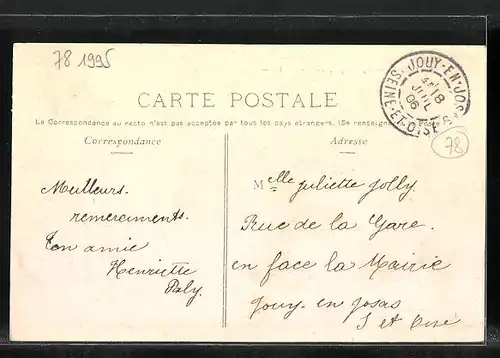 78 1995
JOUY-EN-JOSAS
18
JUIL
06
SEINE-ET-OISE
CARTE POSTALE
La Correspondance au recto n'est pas acceptée par tous les pays étrangers. (Se renseigner à la Poste
78
Correspondance
Adresse
Meilleurs
remerciments.
Ton amie
Henriette
Melle Juliette Jolly.
Rue de la Gare.
en face la Mairie
Jouy en Josas
S et Oise